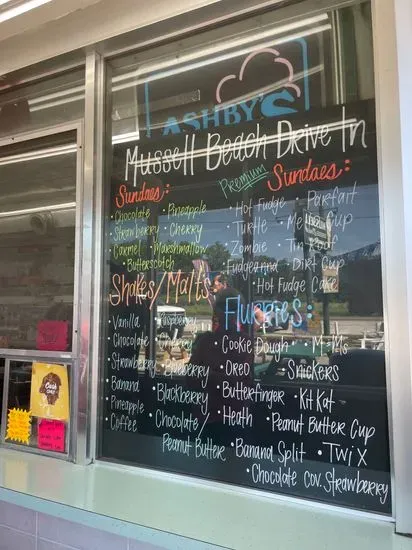 ASHBY'S
Mussell Beach Drive In
Sundaes:
• Chocolate • Pineapple
• Strawberry • Cherry
• Carmel • Marshmallow
• Butterscotch
Premium Sundaes:
• Hot Fudge • Parfait
• Turtle • Melba Cup
• Zombie • Tin Roof
• Fudgeanna • Dirt Cup
• Hot Fudge Cake
Shakes/Malts
• Vanilla • Raspberry
• Chocolate • Cherry
• Strawberry • Blueberry
• Banana • Blackberry
• Pineapple • Chocolate/
• Coffee Peanut Butter
Flurries:
• Cookie Dough • M+Ms
• Oreo • Snickers
• Butterfinger • Kit Kat
• Heath • Peanut Butter Cup
• Banana Split • Twix
• Chocolate cov. Strawberry
Cash
only